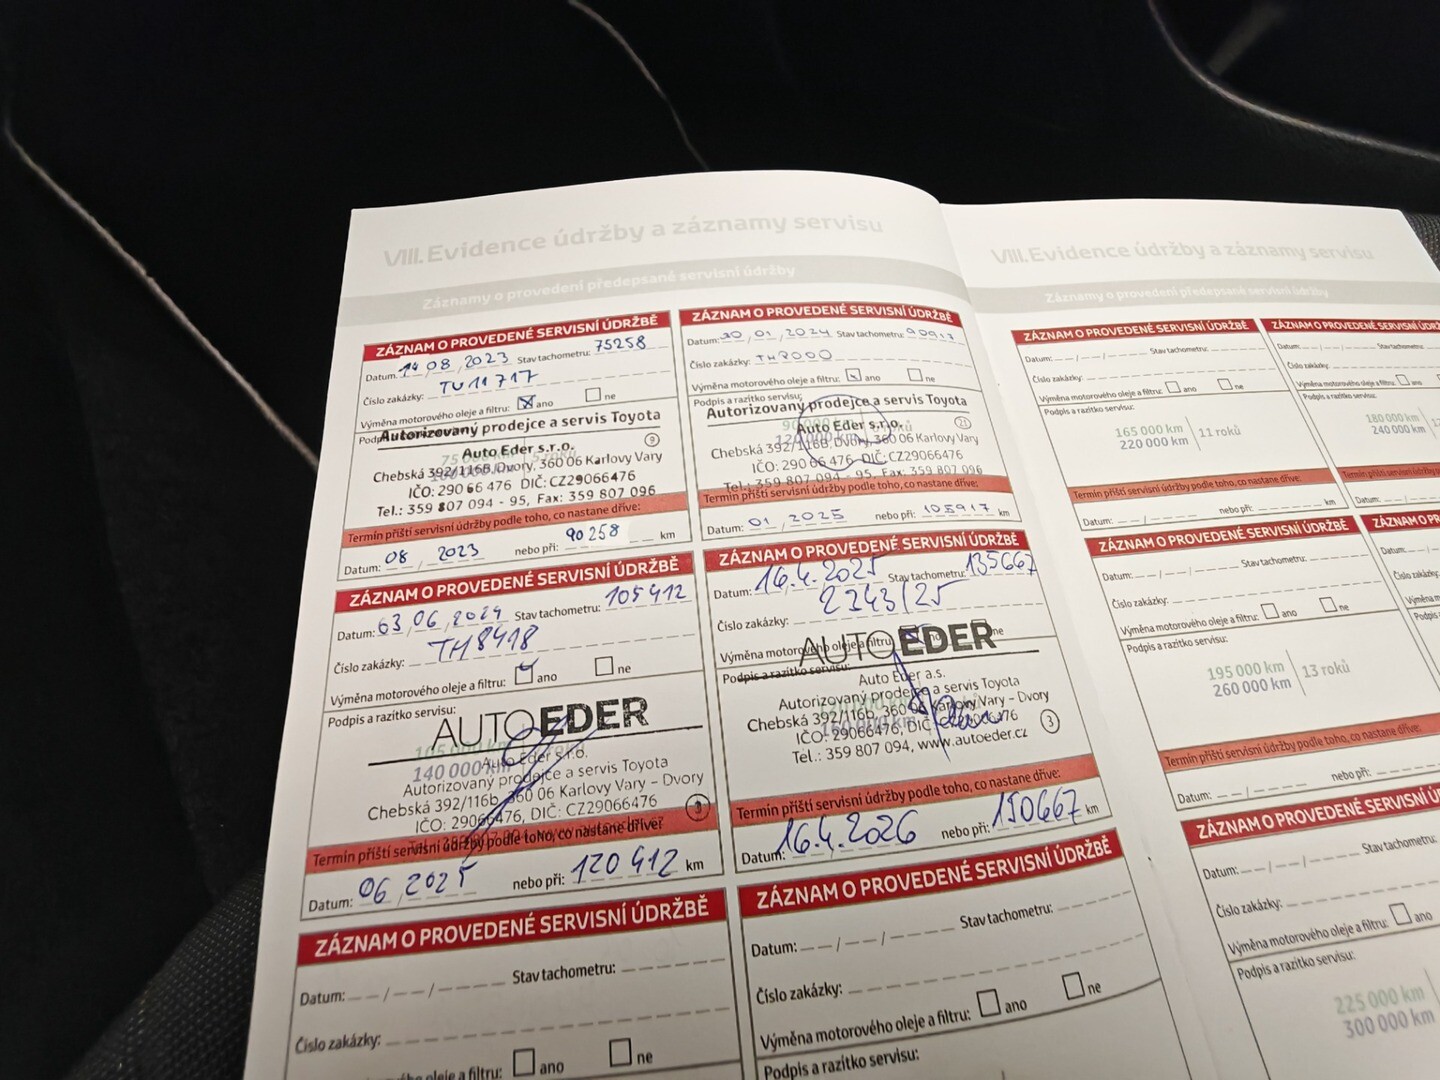 VIII. Evidence údržby a záznamy servisu
Záznamy o provedení předepsané servisní údržby
ZÁZNAM O PROVEDENÉ SERVISNÍ ÚDRŽBĚ
Datum: 14 / 08 / 2023 Stav tachometru: 75258
Číslo zakázky: TU11717
Výměna motorového oleje a filtru: ano ne
Autorizovaný prodejce a servis Toyota
Auto Eder s.r.o. 9
Chebská 392/116B, Dvory, 360 06 Karlovy Vary
IČO: 290 66 476 DIČ: CZ29066476
Tel.: 359 807 094 - 95, Fax: 359 807 096
Termín příští servisní údržby podle toho, co nastane dříve:
Datum: 08 / 2023 nebo při: 90258 km
ZÁZNAM O PROVEDENÉ SERVISNÍ ÚDRŽBĚ
Datum: 30 / 01 / 2024 Stav tachometru: 90917
Číslo zakázky: TH2000
Výměna motorového oleje a filtru: ano ne
Podpis a razítko servisu:
Autorizovaný prodejce a servis Toyota
Auto Eder s.r.o. 21
Chebská 392/116B, Dvory, 360 06 Karlovy Vary
IČO: 290 66 476 DIČ: CZ29066476
Tel.: 359 807 094 - 95, Fax: 359 807 096
Termín příští servisní údržby podle toho, co nastane dříve:
Datum: 01 / 2025 nebo při: 105917 km
ZÁZNAM O PROVEDENÉ SERVISNÍ ÚDRŽBĚ
Datum: 03 / 06 / 2024 Stav tachometru: 105412
Číslo zakázky: TH8418
Výměna motorového oleje a filtru: ano ne
Podpis a razítko servisu:
AUTO EDER
105 000 km
140 000 km
Auto Eder s.r.o.
Autorizovaný prodejce a servis Toyota
Chebská 392/116b, 360 06 Karlovy Vary – Dvory
IČO: 29066476, DIČ: CZ29066476
Termín příští servisní údržby podle toho, co nastane dříve:
Datum: 06 / 2025 nebo při: 120 412 km
ZÁZNAM O PROVEDENÉ SERVISNÍ ÚDRŽBĚ
Datum: 16.4.2025 Stav tachometru: 135667
Číslo zakázky: 2343/25
Výměna motorového oleje a filtru: ne
AUTO EDER
Podpis a razítko servisu:
Auto Eder a.s.
Autorizovaný prodejce a servis Toyota
Chebská 392/116b, 360 06 Karlovy Vary – Dvory
IČO: 29066476, DIČ: 29066476 3
Tel.: 359 807 094, www.autoeder.cz
Termín příští servisní údržby podle toho, co nastane dříve:
Datum: 16.4.2026 nebo při: 150667 km
ZÁZNAM O PROVEDENÉ SERVISNÍ ÚDRŽBĚ
Datum: Stav tachometru:
Číslo zakázky:
Výměna motorového oleje a filtru: ano ne
ZÁZNAM O PROVEDENÉ SERVISNÍ ÚDRŽBĚ
Datum: Stav tachometru:
Číslo zakázky:
Výměna motorového oleje a filtru: ano ne
Podpis a razítko servisu:
VIII. Evidence údržby a záznamy servisu
Záznamy o provedení předepsané servisní údržby
ZÁZNAM O PROVEDENÉ SERVISNÍ ÚDRŽBĚ
Datum: Stav tachometru:
Číslo zakázky:
Výměna motorového oleje a filtru: ano ne
Podpis a razítko servisu:
165 000 km
220 000 km
11 roků
Termín příští servisní údržby podle toho, co nastane dříve:
Datum: nebo při: km
ZÁZNAM O PROVEDENÉ SERVISNÍ
Datum: Stav tachometru:
Číslo zakázky:
Výměna motorového oleje a filtru:
Podpis a razítko servisu:
180 000 km
240 000 km
Termín příští servisní údržby podle
Datum:
ZÁZNAM O PROVEDENÉ SERVISNÍ ÚDRŽBĚ
Datum: Stav tachometru:
Číslo zakázky:
Výměna motorového oleje a filtru: ano ne
Podpis a razítko servisu:
195 000 km
260 000 km
13 roků
Termín příští servisní údržby podle toho, co nastane dříve:
Datum: nebo při: km
ZÁZNAM O PRO
Datum:
ZÁZNAM O PROVEDENÉ SERVISNÍ
Datum: Stav tachometru:
Číslo zakázky:
Výměna motorového oleje a filtru: ano
Podpis a razítko servisu:
225 000 km
300 000 km